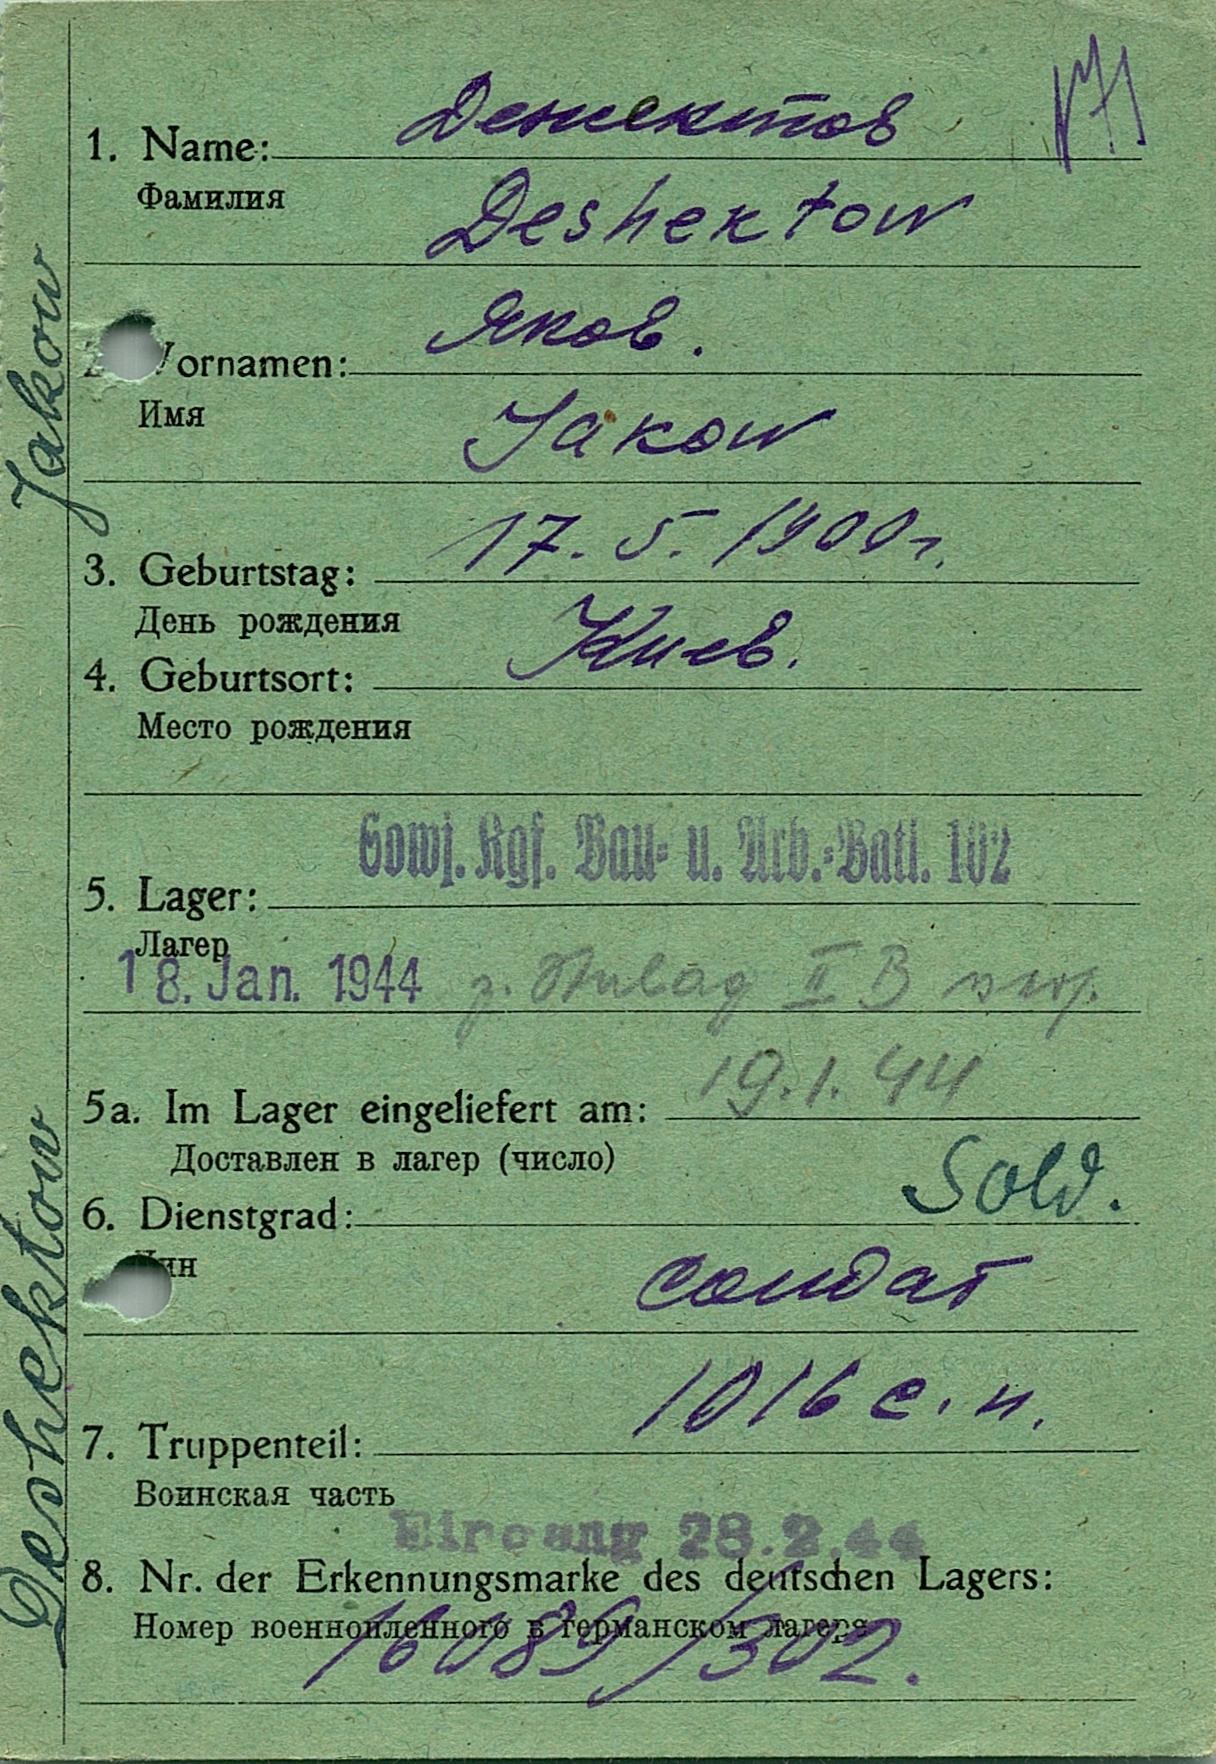 1. Name: Денектов
Фамилия
Deshektow
Яков.
Vornamen:
Имя
Jakow
17. 5. 1900г.
3. Geburtstag:
День рождения
Киев.
4. Geburtsort:
Место рождения
Sowj. Kgf. Bau- u. Arb.-Batl. 102
5. Lager:
Лагер
18. Jan. 1944 z. Stalag II B vers.
19.1.44
5a. Im Lager eingeliefert am:
Доставлен в лагер (число)
Sold.
6. Dienstgrad:
Чин
солдат
1016 с. п.
7. Truppenteil:
Воинская часть
Eingang 28.2.44
8. Nr. der Erkennungsmarke des deutschen Lagers:
Номер военнопленного в германском лагере
16089/302.
Deshektow Jakow